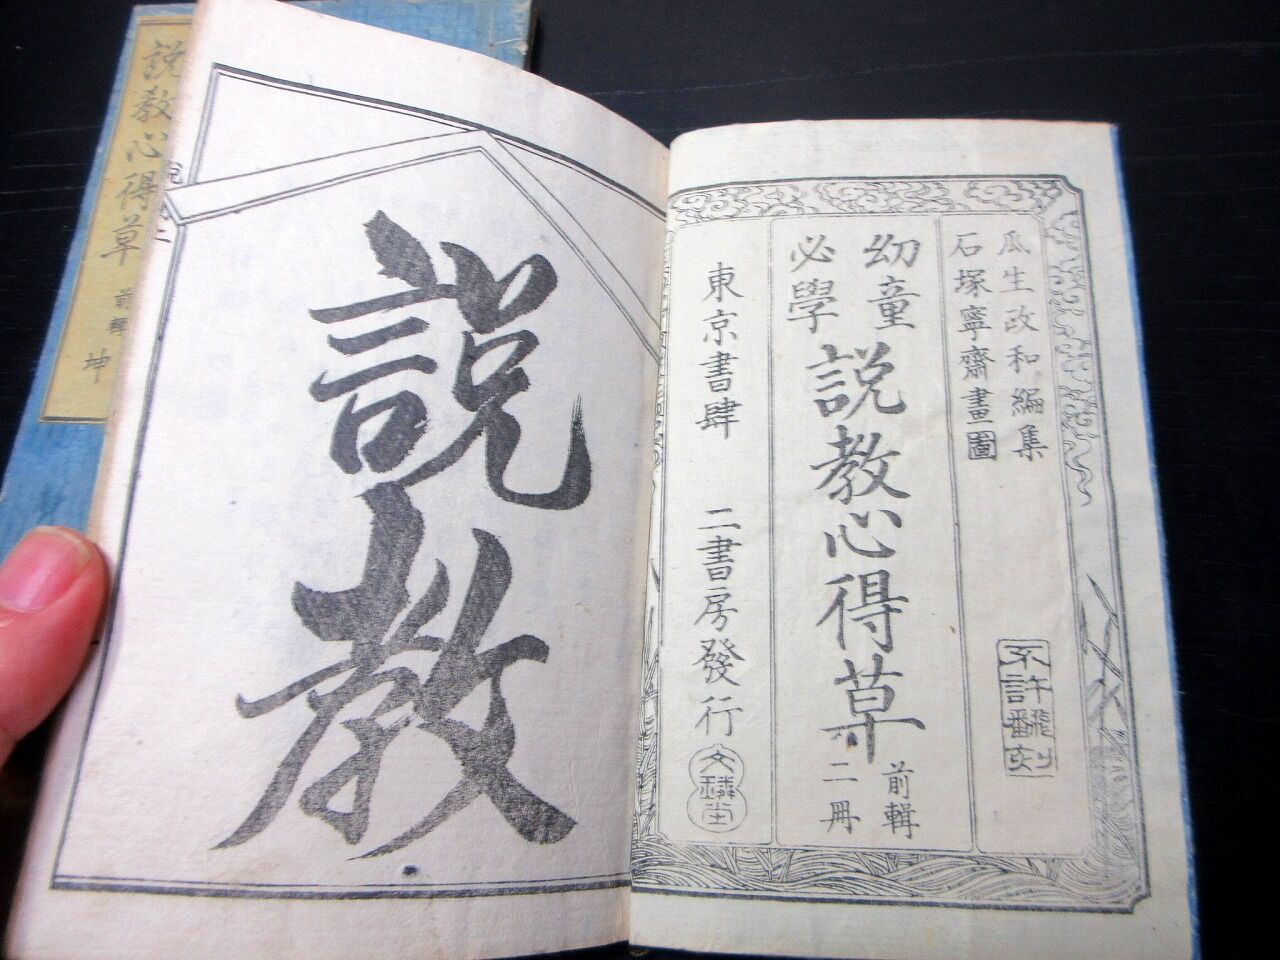 瓜生政和編集
石塚寧齋畫圖
不許翻刻
幼童
必學
說教心得草
前輯
二冊
東京書肆 二書房發行
文麟堂
說教
說教心得草
前輯
坤